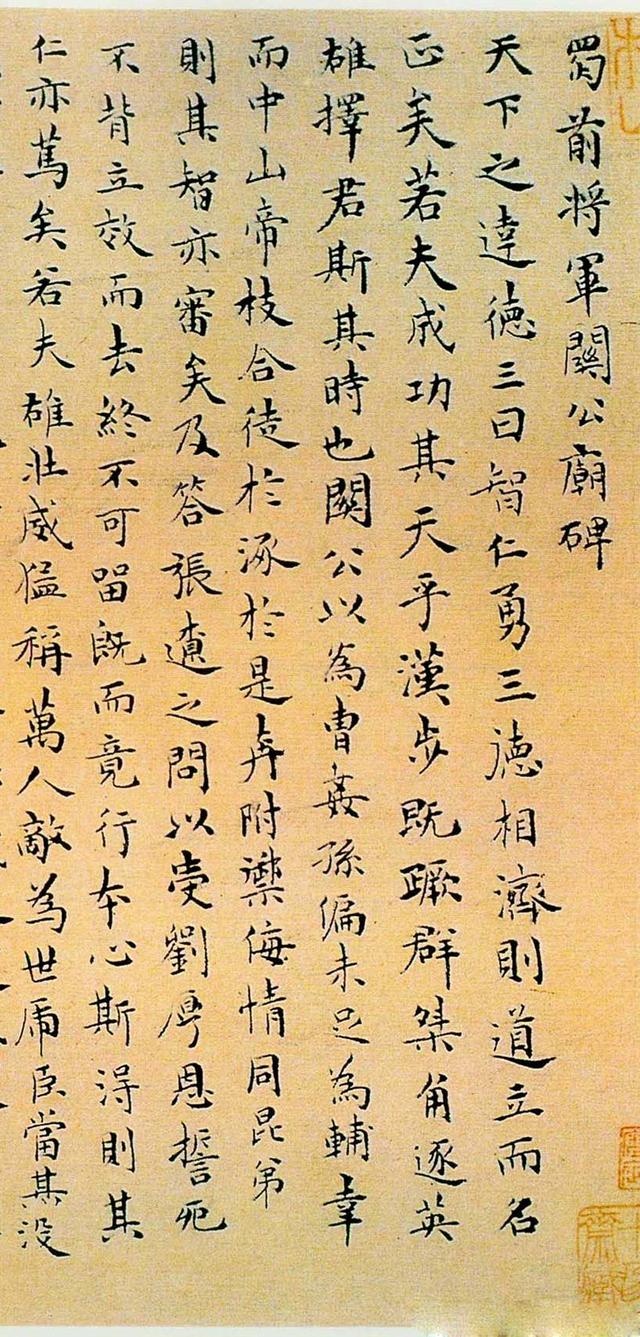 蜀前将軍關公廟碑
天下之達德三曰智仁勇三德相濟則道立而名
正矣若夫成功其天乎漢步既蹶群桀角逐英
雄擇君斯其時也關公以為曹姦孫偏未足為輔幸
而中山帝枝合徒於涿於是奔附禦侮情同昆弟
則其智亦審矣及答張遼之問以受劉厚恩誓死
不背立效而去終不可留既而竟行本心斯得則其
仁亦篤矣若夫雄壯威猛稱萬人敵為世虎臣當其没